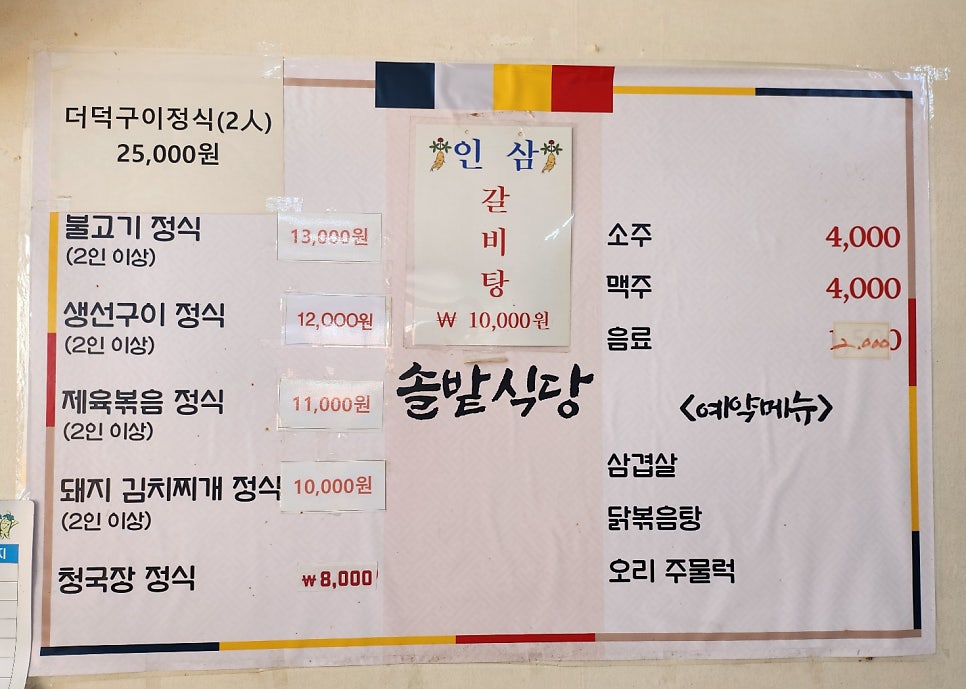 더덕구이정식(2人)
25,000원
불고기 정식 13,000원
(2인 이상)
생선구이 정식 12,000원
(2인 이상)
제육볶음 정식 11,000원
(2인 이상)
돼지 김치찌개 정식 10,000원
(2인 이상)
청국장 정식 ₩8,000
인 삼
갈
비
탕
₩ 10,000원
솔밭식당
소주 4,000
맥주 4,000
음료 2,000
<예약메뉴>
삼겹살
닭볶음탕
오리 주물럭
지